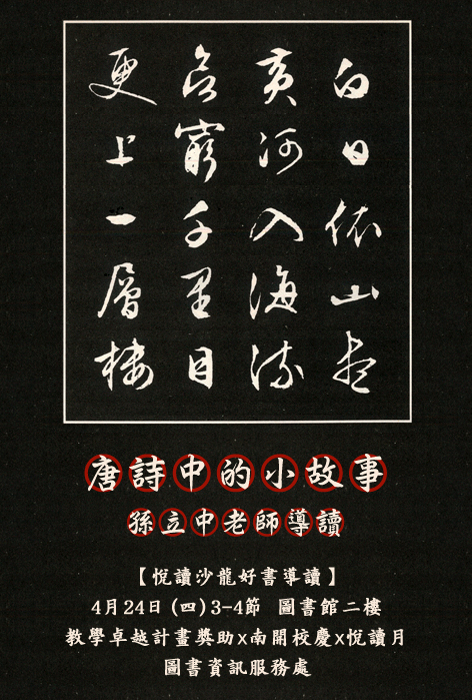 白日依山盡
黃河入海流
欲窮千里目
更上一層樓
唐詩中的小故事
孫立中老師導讀
【悅讀沙龍好書導讀】
4月24日(四)3-4節 圖書館二樓
教學卓越計畫獎助x南開校慶x悅讀月
圖書資訊服務處